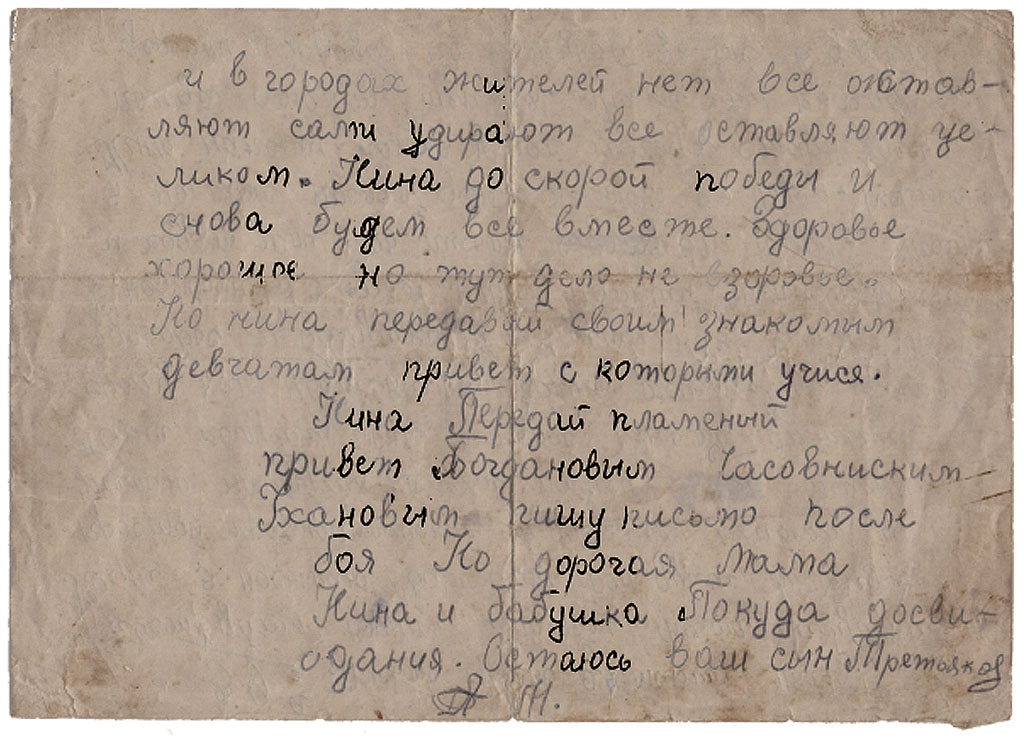 и в городах жителей нет все остав-
ляют сами удирают все оставляют це-
ликом. Нина до скорой победы и
снова будем все вместе. Здоровье
хорошее но тут дело не в здоровье.
Но нина передавай своим знакомым
девчатам привет с которыми учися.
Нина Передай пламеный
привет Богдановым Часовниским
Ухановым пишу письмо после
боя Но дорогая Мама
Нина и бабушка Покуда досви-
дания. Остаюсь ваш сын Третьяков
М.